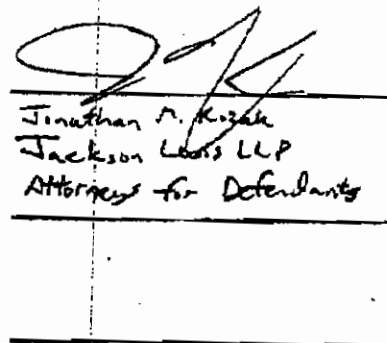 Jonathan M. Kozak
Jackson Lewis LLP
Attorneys for Defendants